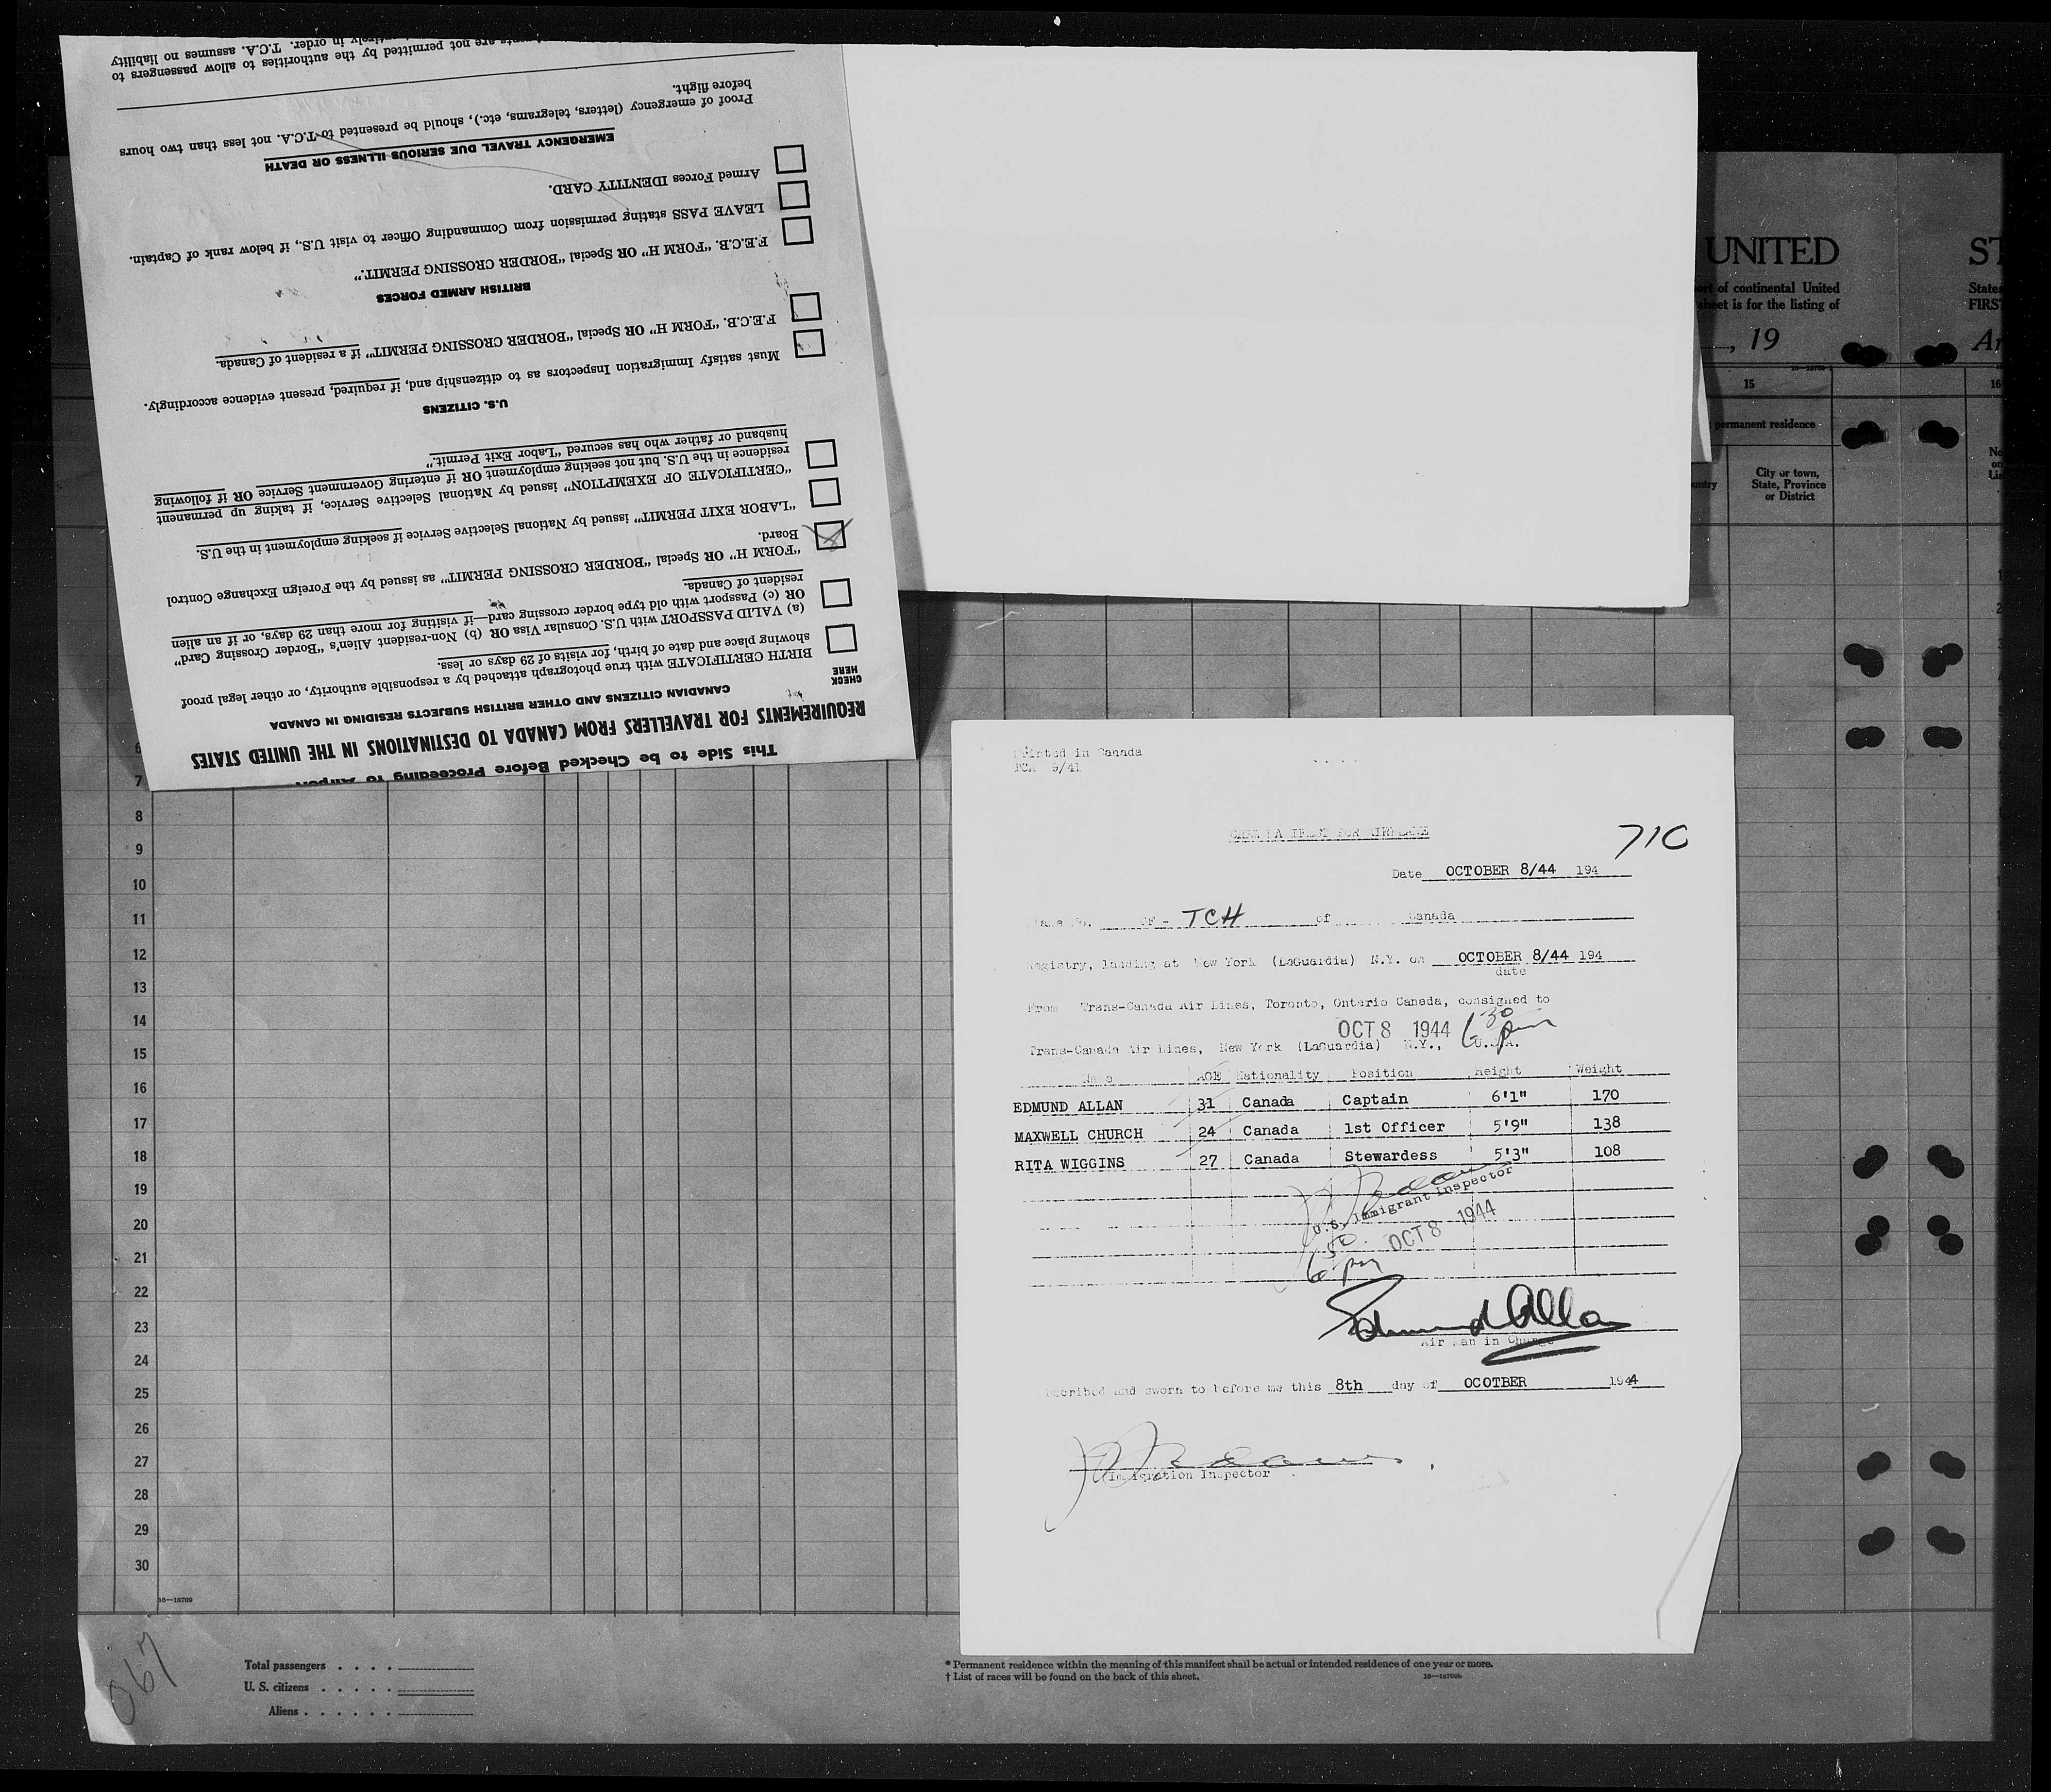 This Side to be Checked Before Proceeding to Airport
REQUIREMENTS FOR TRAVELLERS FROM CANADA TO DESTINATIONS IN THE UNITED STATES
CANADIAN CITIZENS AND OTHER BRITISH SUBJECTS RESIDING IN CANADA
CHECK
HERE
BIRTH CERTIFICATE with true photograph attached by a responsible authority, or other legal proof
showing place and date of birth, for visits of 29 days or less.
(a) VALID PASSPORT with U.S. Consular Visa OR (b) Non-resident Alien's "Border Crossing Card"
OR (c) Passport with old type border crossing card—if visiting for more than 29 days, or if an alien
resident of Canada.
"FORM H" OR Special "BORDER CROSSING PERMIT" as issued by the Foreign Exchange Control
Board.
"LABOR EXIT PERMIT" issued by National Selective Service if seeking employment in the U.S.
"CERTIFICATE OF EXEMPTION" issued by National Selective Service, if taking up permanent
residence in the U.S. but not seeking employment OR if entering Government Service OR if following
husband or father who has secured "Labor Exit Permit."
U.S. CITIZENS
Must satisfy Immigration Inspectors as to citizenship and, if required, present evidence accordingly.
F.E.C.B. "FORM H" OR Special "BORDER CROSSING PERMIT" if a resident of Canada.
BRITISH ARMED FORCES
F.E.C.B. "FORM H" OR Special "BORDER CROSSING PERMIT."
LEAVE PASS stating permission from Commanding Officer to visit U.S., if below rank of Captain.
Armed Forces IDENTITY CARD.
EMERGENCY TRAVEL DUE SERIOUS ILLNESS OR DEATH
Proof of emergency (letters, telegrams, etc.), should be presented to T.C.A. not less than two hours
before flight.
are not permitted by the authorities to allow passengers to
in order. T.C.A. assumes no liability
UNITED
ST
of continental United
States
sheet is for the listing of
FIRS
, 19
Ar
15
16
permanent residence
No
on
Lis
City or town,
State, Province
or District
Printed in Canada
TCA 9/41
710
Date OCTOBER 8/44 194
CF - TCH of Canada
Registry, landing at New York (LaGuardia) N.Y. on OCTOBER 8/44 194
date
From Trans-Canada Air Lines, Toronto, Ontario Canada, consigned to
OCT 8 1944 6 30 pm
Trans-Canada Air Lines, New York (LaGuardia) N.Y., U.S.A.
Name AGE Nationality Position Height Weight
EDMUND ALLAN 31 Canada Captain 6'1" 170
MAXWELL CHURCH 24 Canada 1st Officer 5'9" 138
RITA WIGGINS 27 Canada Stewardess 5'3" 108
U.S. Immigrant Inspector
OCT 8 1944
6 50 pm
Edmund Allan
Air Man in Charge
scribed and sworn to before me this 8th day of OCOTBER 1944
Immigration Inspector
6
7
8
9
10
11
12
13
14
15
16
17
18
19
20
21
22
23
24
25
26
27
28
29
30
16—18709
067
Total passengers . . . .
U. S. citizens . . . . .
Aliens . . . . . .
* Permanent residence within the meaning of this manifest shall be actual or intended residence of one year or more.
† List of races will be found on the back of this sheet.
16—18709b